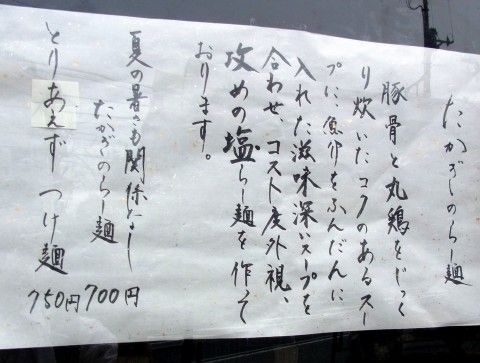 たかぎのらー麺
豚骨と丸鶏をじっく
り炊いたコクのあるスー
プに、魚介をふんだんに
入れた滋味深いスープを
合わせ、コスト度外視、
攻めの塩らー麺を作って
おります。
夏の暑さも関係なし
たかぎのらー麺 700円
とりあえず つけ麺 750円